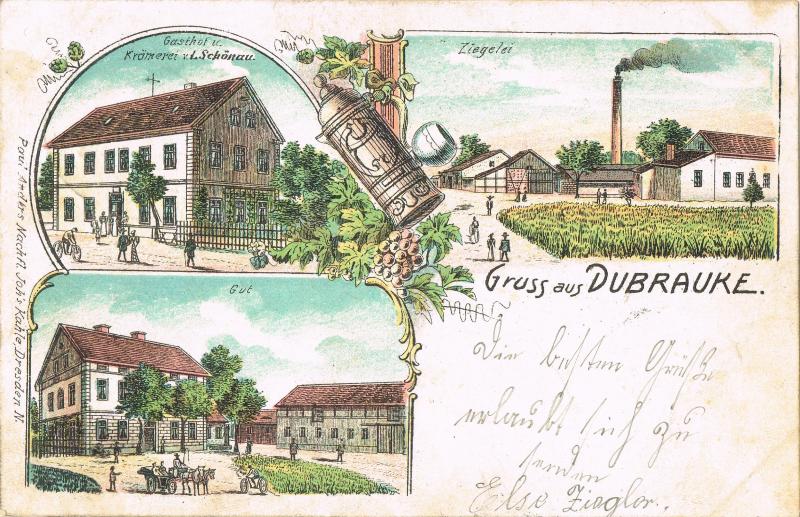 Gasthof u.
Krämerei v. L. Schönau.
Ziegelei
Gruss aus DUBRAUKE.
Gut
Die besten Grüße
erlaubt sich zu
senden
Else Ziegler.
Paul Anders Nachfl. Joh's. Kahle, Dresden N.